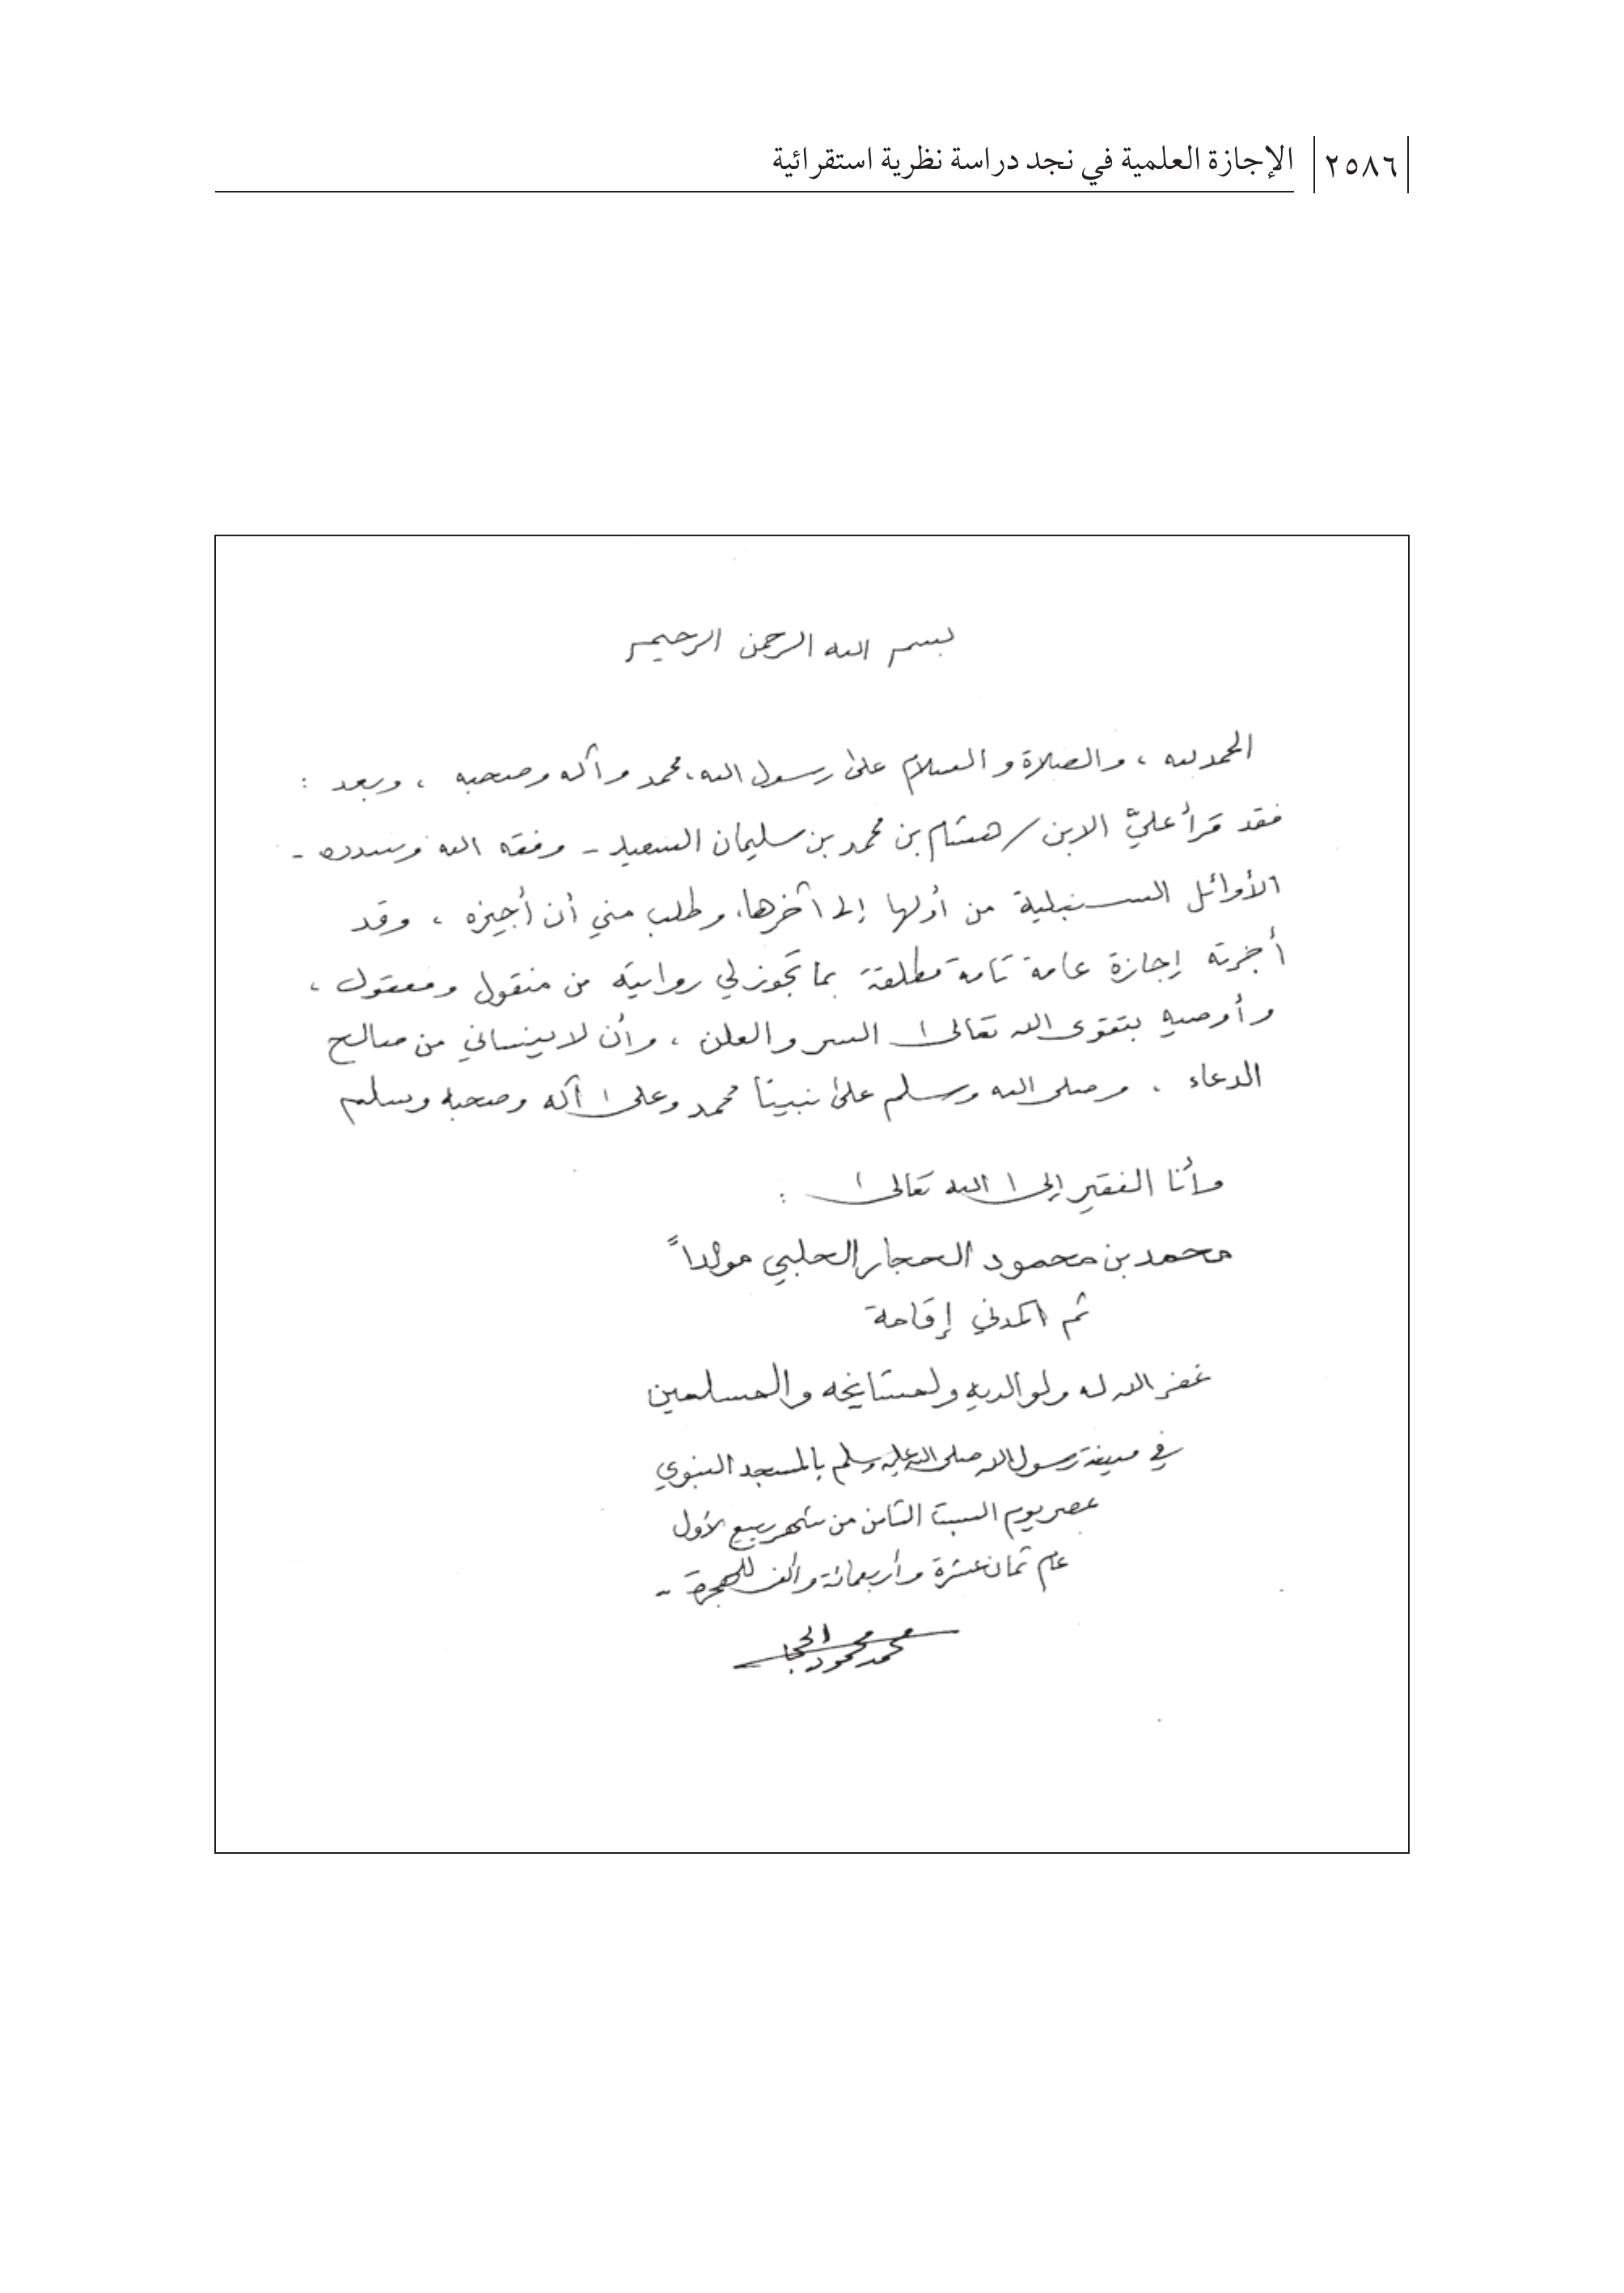 ٢٥٨٦ الإجازة العلمية في نجد دراسة نظرية استقرائية
بسم الله الرحمن الرحيم
الحمد لله ، والصلاة والسلام على رسول الله، محمد وآله وصحبه ، وبعد :
فقد قرأ عليَّ الابن / هشام بن محمد بن سليمان السعيد - وفقه الله وسدده -
الأوائل السنبلية من أولها إلى آخرها، وطلب مني أن أجيزه ، وقد
أجزته إجازة عامة تامة مطلقة بما تجوز لي روايته من منقول ومعقول ،
وأوصيه بتقوى الله تعالى السر والعلن ، وأن لا ينساني من صالح
الدعاء . وصلى الله وسلم على نبينا محمد وعلى آله وصحبه وسلم
وأنا الفقير إلى الله تعالى :
محمد بن محمود الحجار الحلبي مولداً
ثم المدني إقامة
غفر الله له ولوالديه ولمشايخه والمسلمين
في مدينة رسول الله صلى الله عليه وسلم بالمسجد النبوي
عصر يوم السبت الثامن من شهر ربيع الأول
عام ثمان عشرة وأربعمائة وألف للهجرة -
محمد محمود الحجار